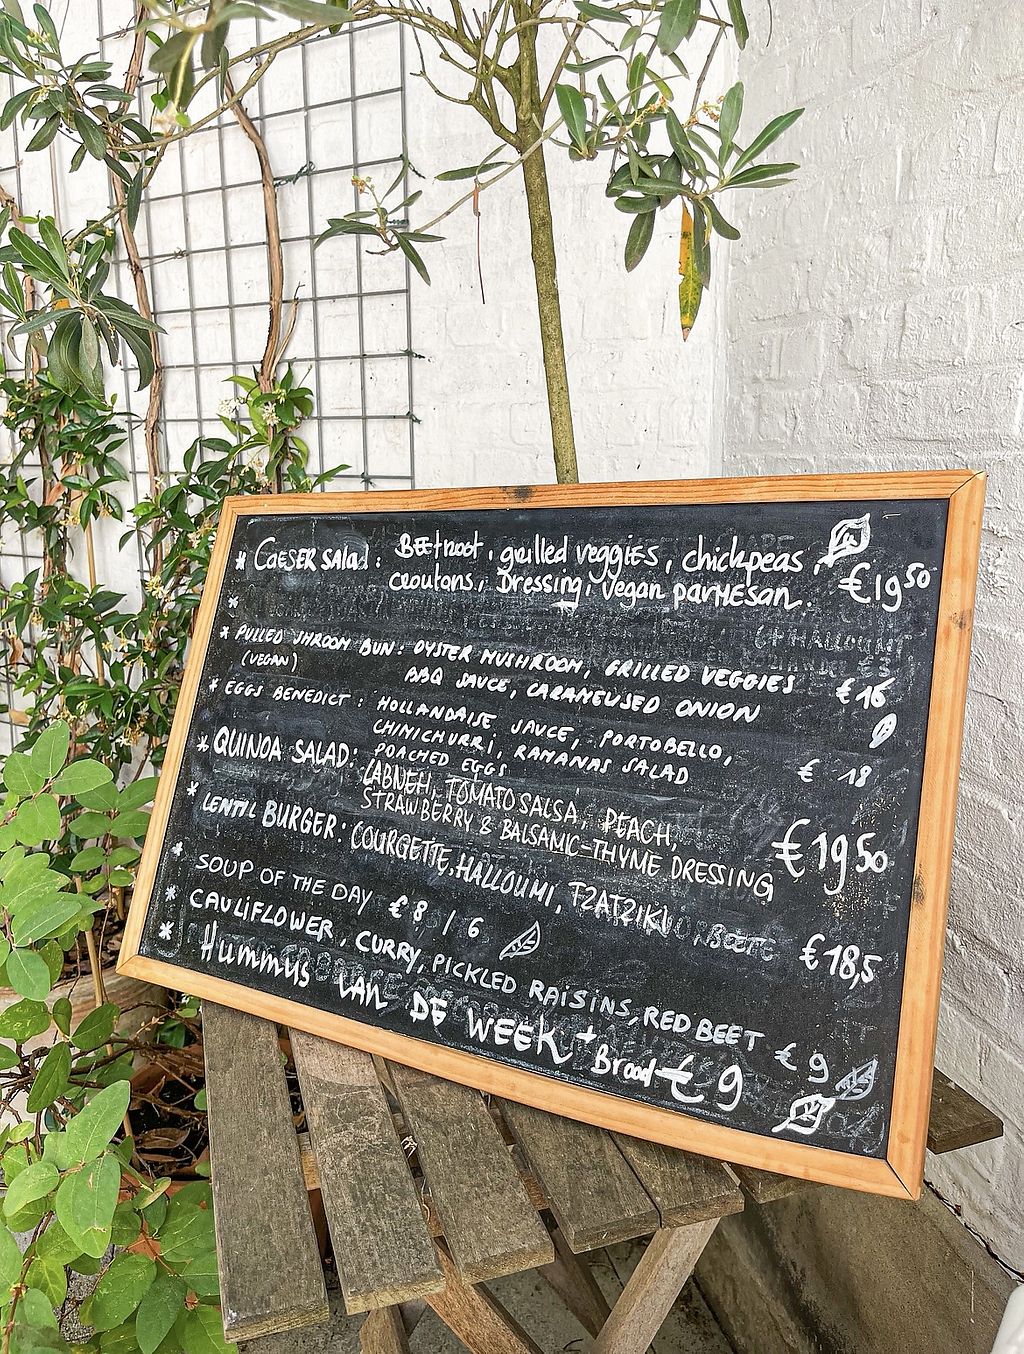 * CAESER SALAD: BEETROOT, grilled veggies, chickpeas,
croutons, Dressing, vegan parmesan. €19,50
*
* PULLED SHROOM BUN: OYSTER MUSHROOM, GRILLED VEGGIES
(VEGAN) BBQ SAUCE, CARAMELISED ONION €16
* EGGS BENEDICT: HOLLANDAISE SAUCE, PORTOBELLO,
CHIMICHURRI, RAMANAS SALAD
POACHED EGGS € 18
* QUINOA SALAD: LABNEH, TOMATO SALSA, PEACH,
STRAWBERRY & BALSAMIC-THYME DRESSING €19,50
* LENTIL BURGER: COURGETTE, HALLOUMI, TZATZIKI €18,5
* SOUP OF THE DAY €8 / 6
* CAULIFLOWER, CURRY, PICKLED RAISINS, RED BEET €9
* HUMMUS VAN DE WEEK + Brood €9